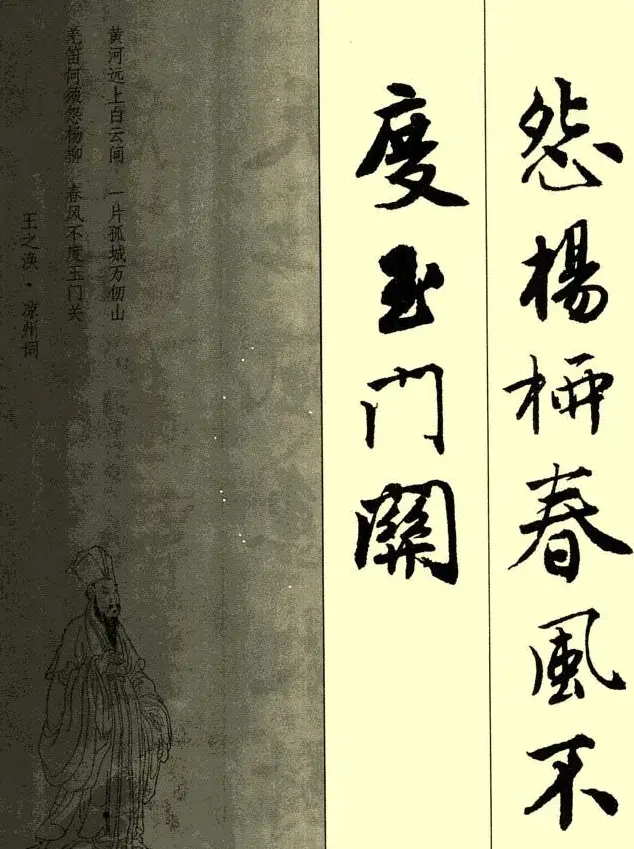 怨楊桺春風不
度玉門關
黄河远上白云间 一片孤城万仞山
羌笛何须怨杨柳 春风不度玉门关
王之涣·凉州词